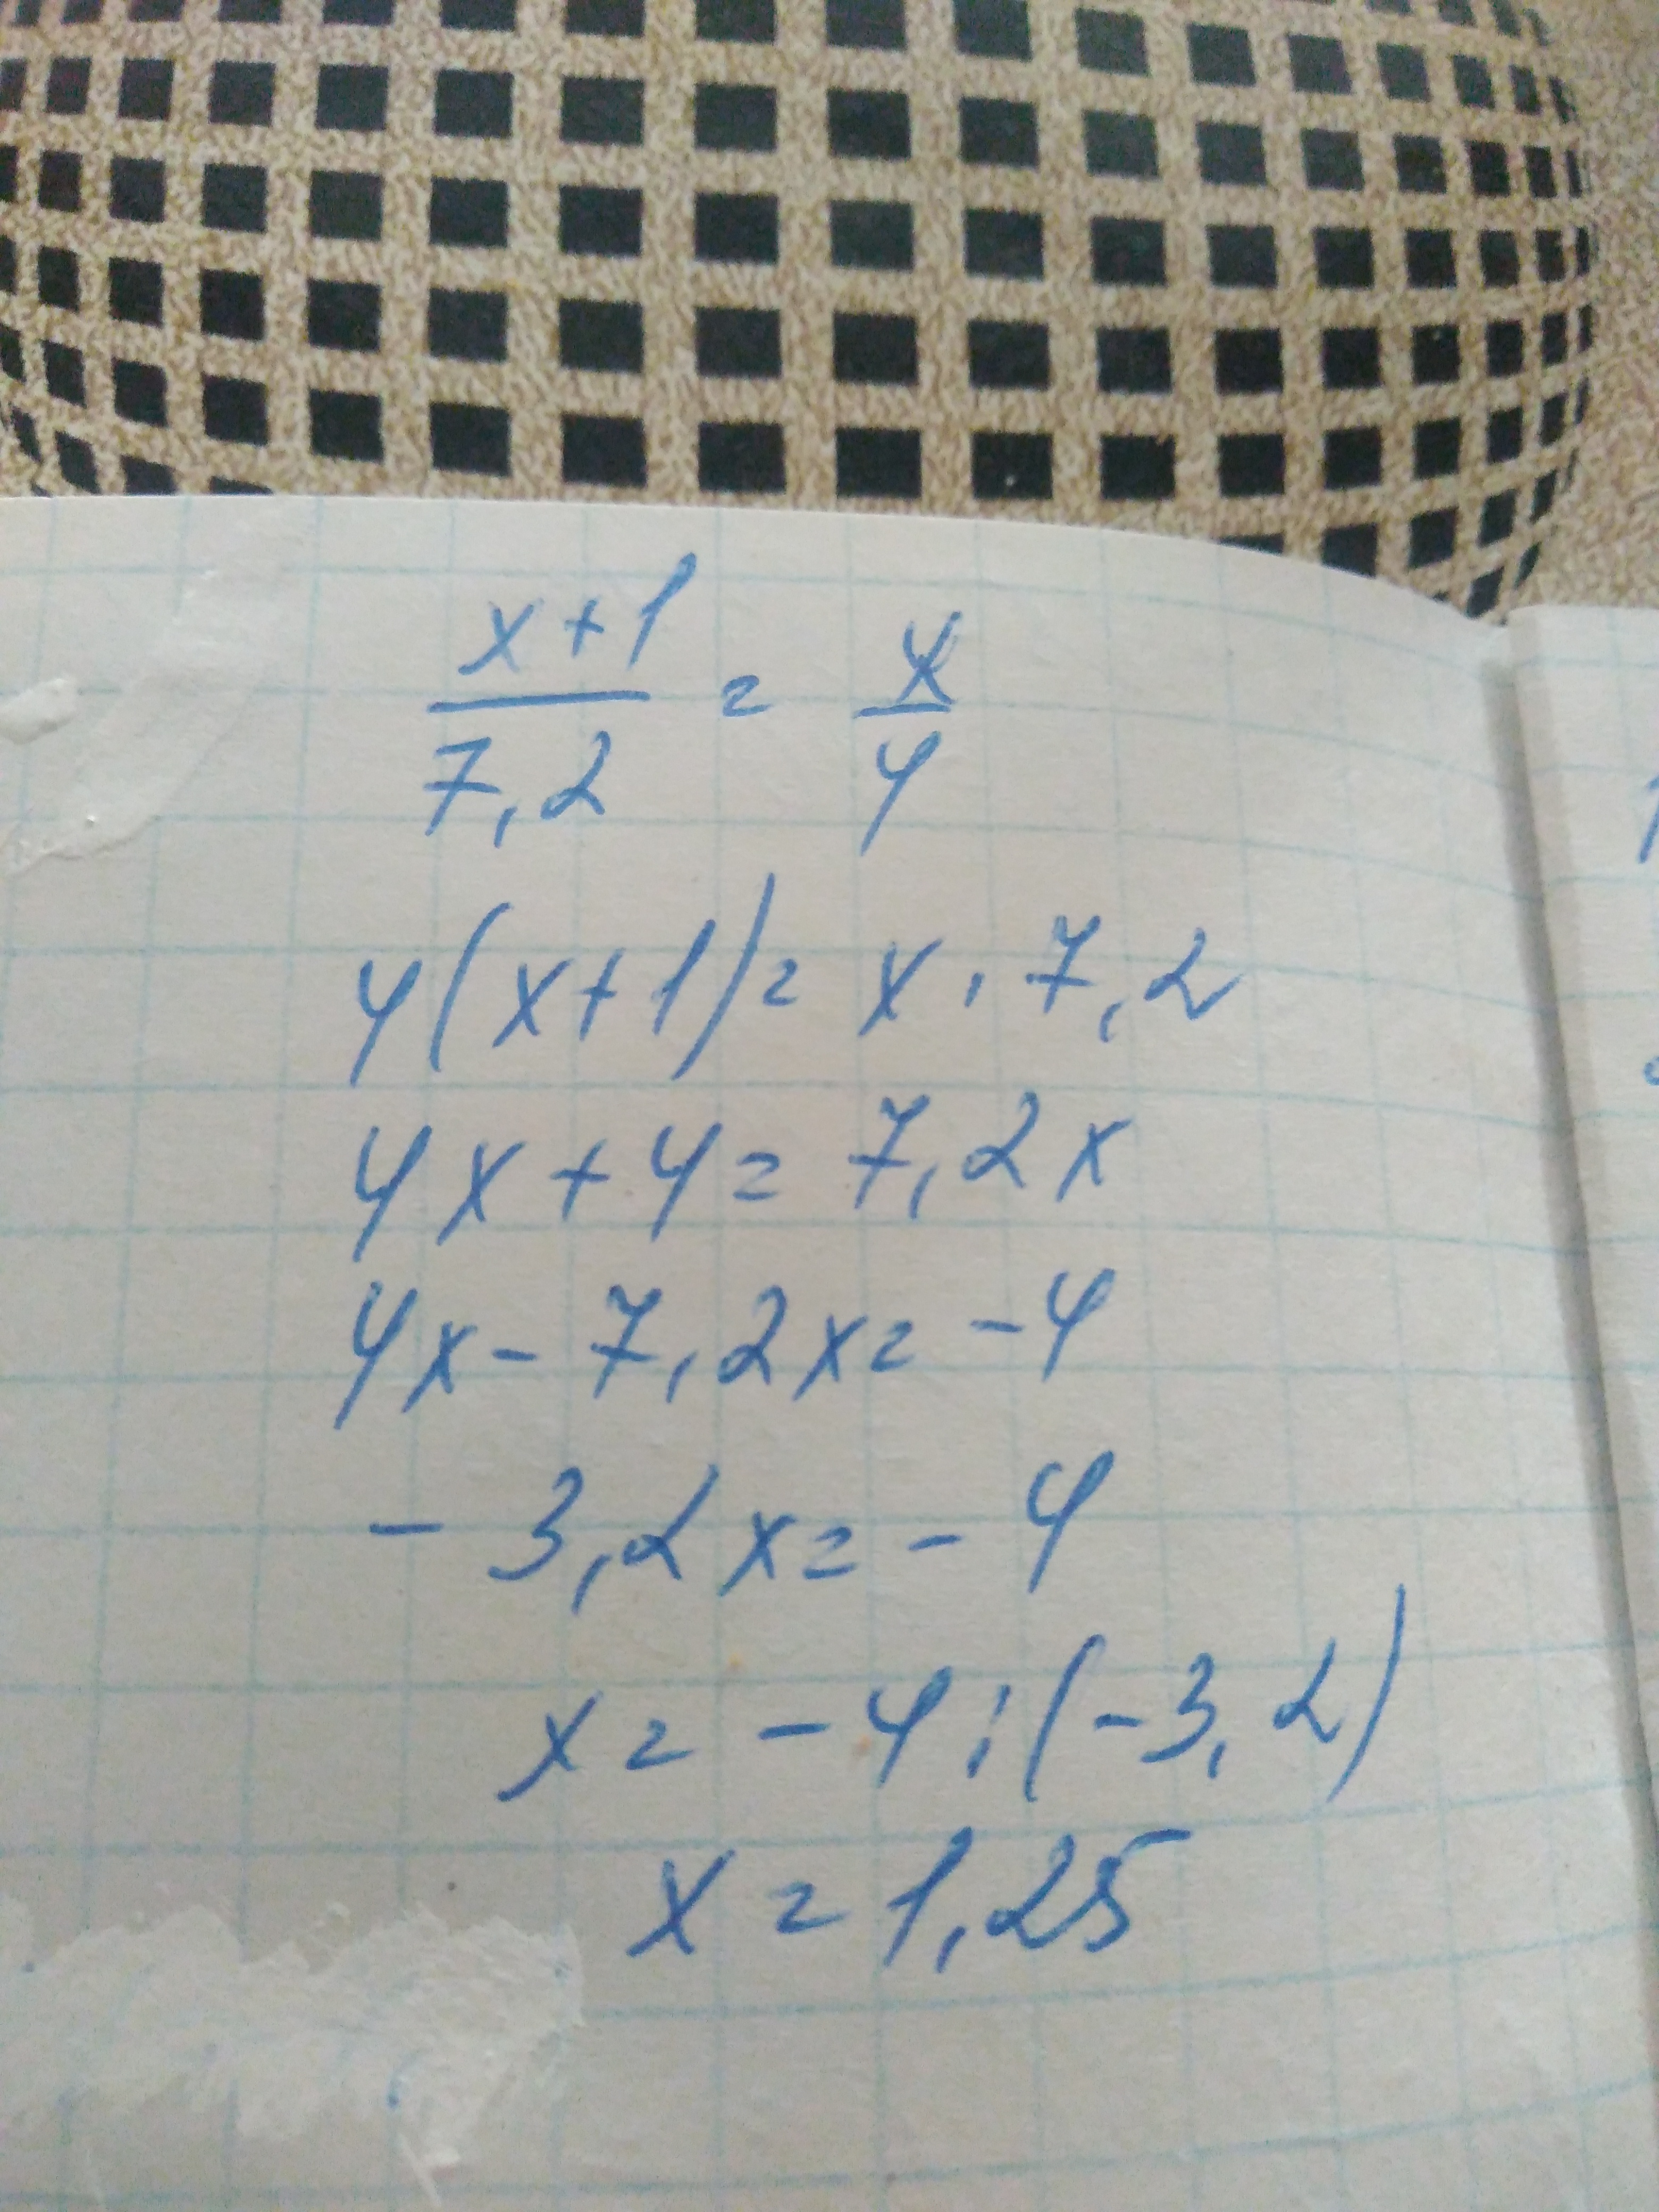 x+1/7,2 = x/4
4(x+1)= x · 7,2
4x+4= 7,2x
4x- 7,2x= -4
- 3,2x= - 4
x= -4:(-3,2)
x=1,25